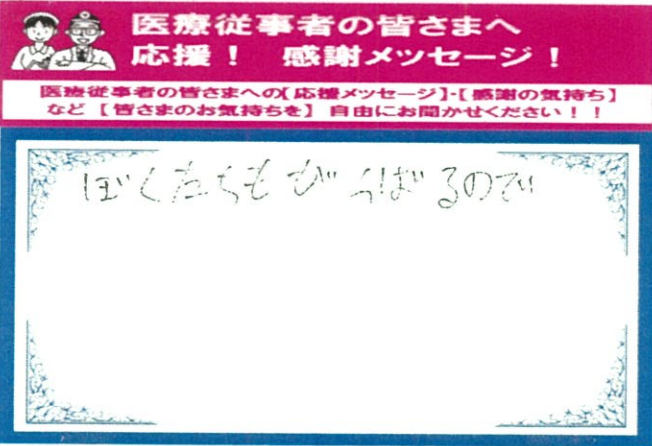 医療従事者の皆さまへ
応援！ 感謝メッセージ！
医療従事者の皆さまへの【応援メッセージ】・【感謝の気持ち】
など【皆さまのお気持ちを】自由にお聞かせください！！
ぼくたちも がんばるので